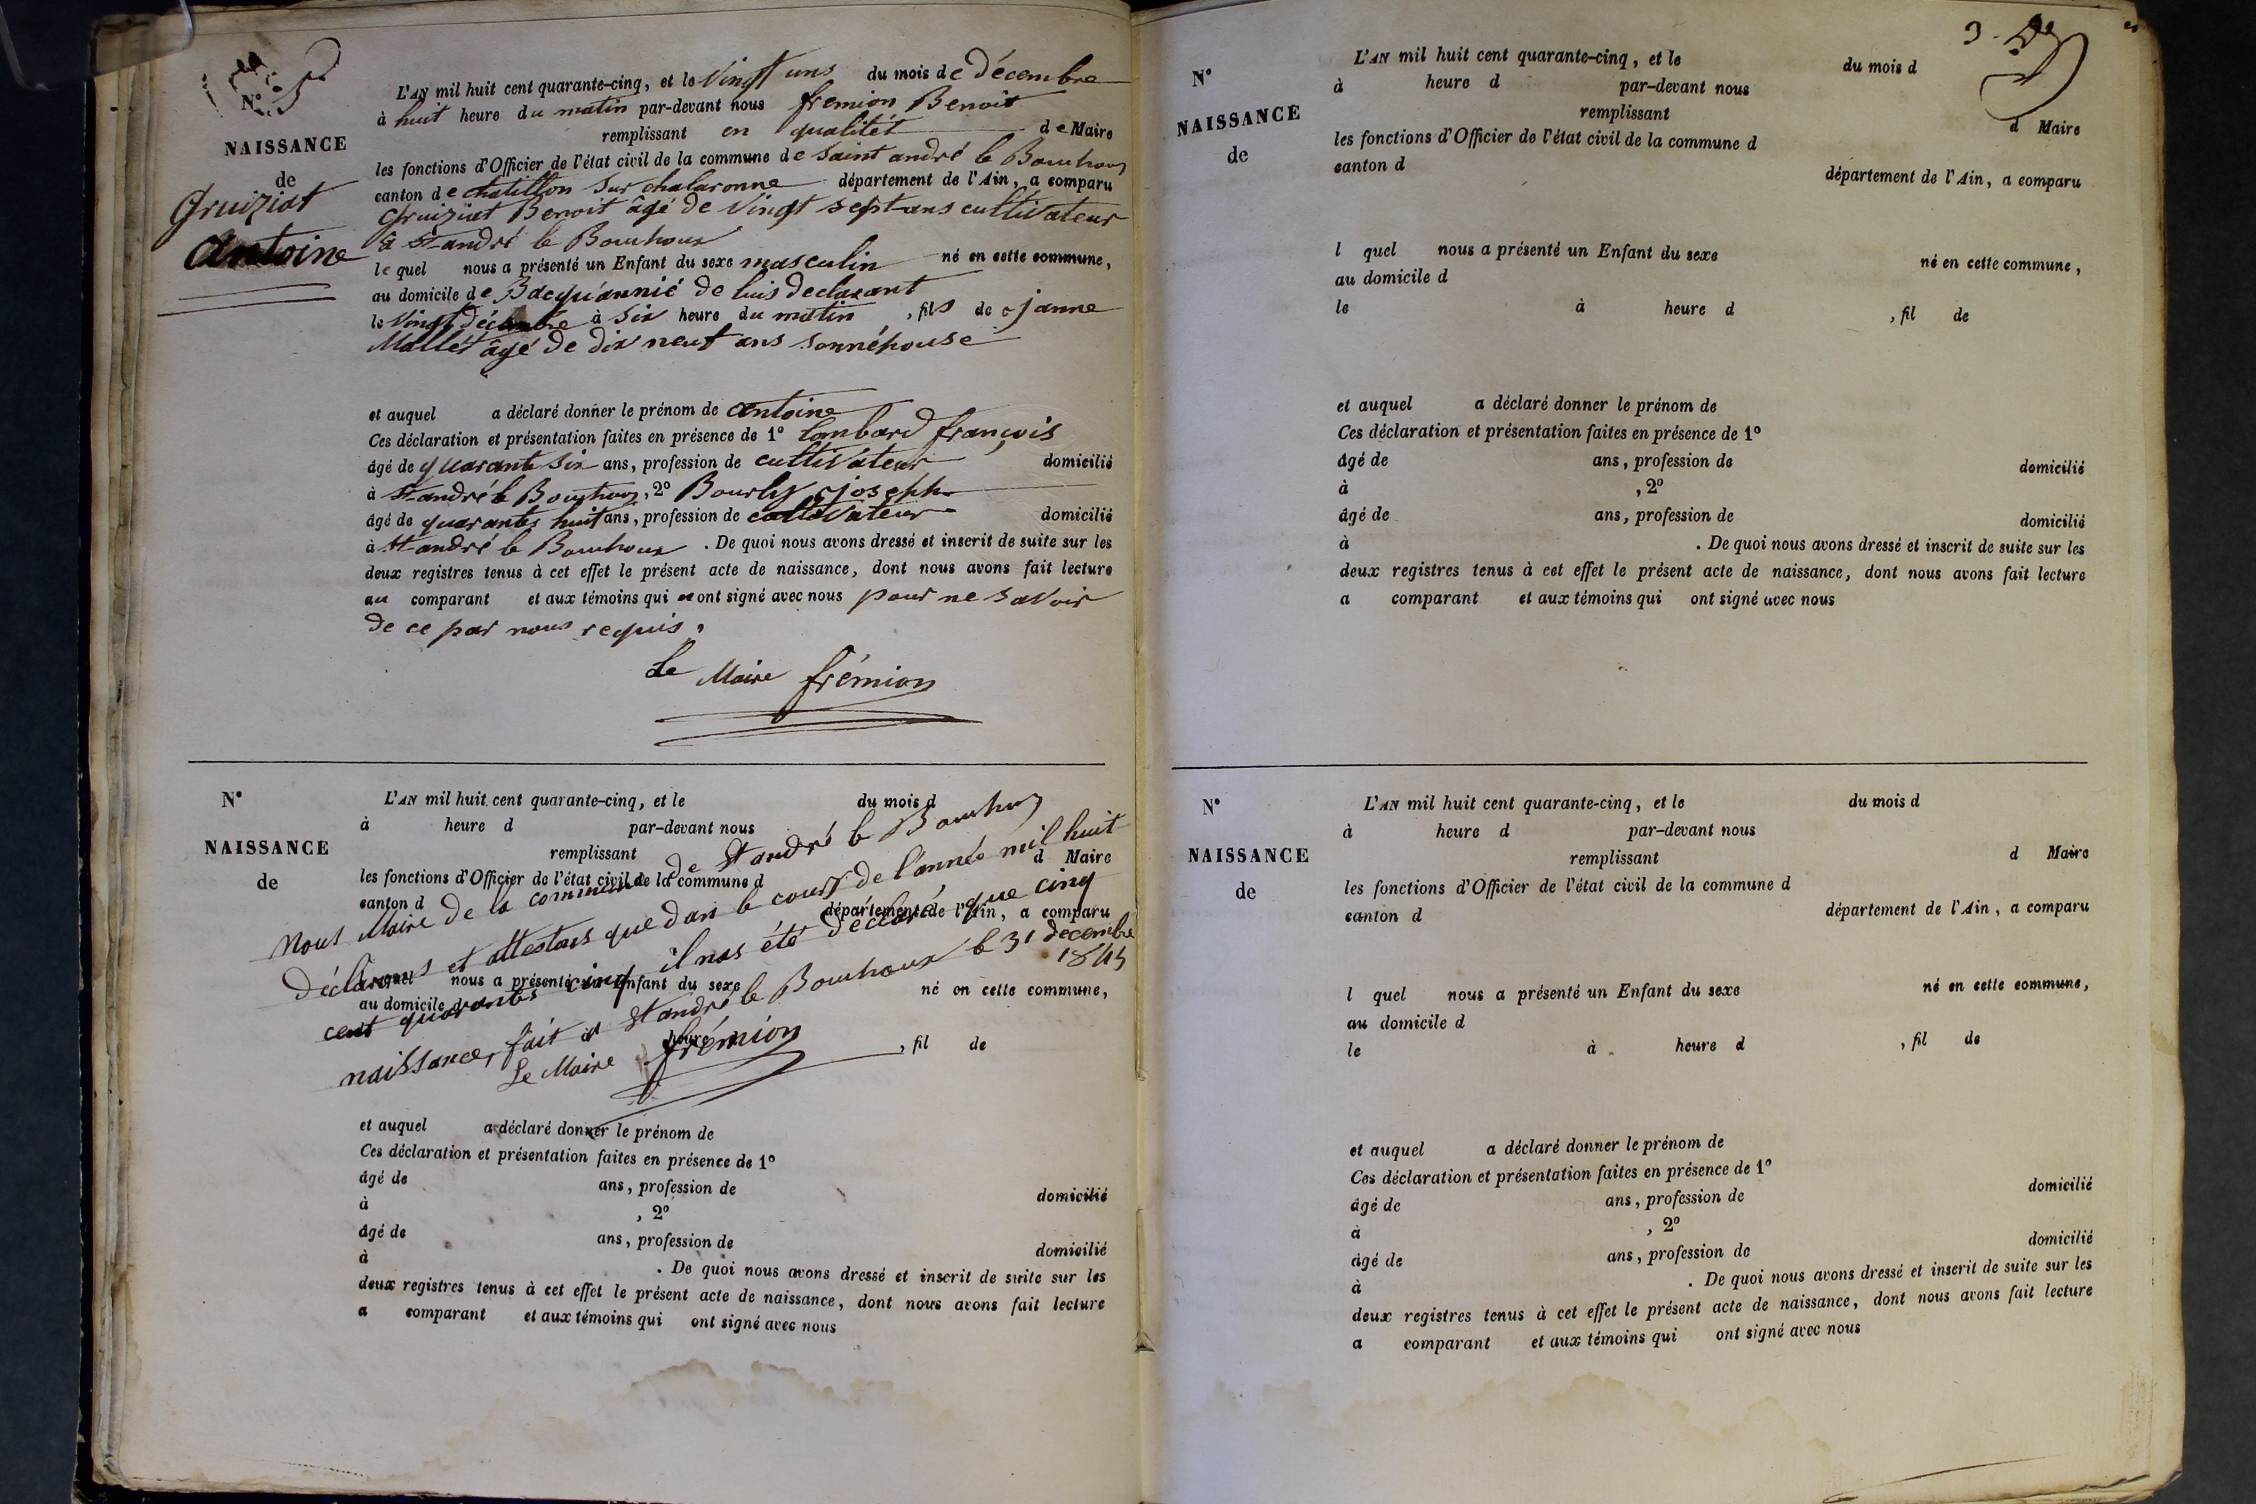 N° 5
NAISSANCE
de
Gruiziat
antoine
L'AN mil huit cent quarante-cinq, et le Vingt uns du mois de décembre
à huit heure du matin par-devant nous fremion Benoit
remplissant en qualitét de Maire
les fonctions d'Officier de l'état civil de la commune de Saint andré le Bouchoux
canton de chatillon sur chalaronne département de l'Ain, a comparu
Gruiziat Benoit âgé de Vingt sept ans cultivateur
a St andré le Bouchoux
le quel nous a présenté un Enfant du sexe masculin né en cette commune,
au domicile de de luis declarant
le Vingt décembre à six heure du matin, fils de janne
Mallet âgé de dix neuf ans sonnéhouse
et auquel a déclaré donner le prénom de antoine
Ces déclaration et présentation faites en présence de 1° lombard françois
âgé de quarante six ans, profession de cultivateur domicilié
à St andré le Bouchoux, 2° Bourly joseph
âgé de quarantes huit ans, profession de cultivateur domicilié
à St andré le Bouchoux. De quoi nous avons dressé et inscrit de suite sur les
deux registres tenus à cet effet le présent acte de naissance, dont nous avons fait lecture
au comparant et aux témoins qui ont signé avec nous pour ne savoir
de ce par nous requis,
Le Maire frémion
N°
NAISSANCE
de
L'AN mil huit cent quarante-cinq, et le du mois d
à heure d par-devant nous
remplissant d Maire
les fonctions d'Officier de l'état civil de la commune d
canton d département de l'Ain, a comparu
l quel nous a présenté un Enfant du sexe né en cette commune,
au domicile d
heure , fil de
Nous Maire de la commune de St andré le Bouchoux
déclarons et attestons que dans le cours de l'année mil huit
cent quarantes cinq il nas été déclaré que cinq
naissance, fait à St andré le Bouchoux le 31 decembre
1845
Le Maire frémion
et auquel a déclaré donner le prénom de
Ces déclaration et présentation faites en présence de 1°
âgé de ans, profession de domicilié
à , 2°
âgé de ans, profession de domicilié
à . De quoi nous avons dressé et inscrit de suite sur les
deux registres tenus à cet effet le présent acte de naissance, dont nous avons fait lecture
a comparant et aux témoins qui ont signé avec nous
N°
NAISSANCE
de
L'AN mil huit cent quarante-cinq, et le du mois d
à heure d par-devant nous
remplissant d Maire
les fonctions d'Officier de l'état civil de la commune d
canton d département de l'Ain, a comparu
l quel nous a présenté un Enfant du sexe né en cette commune,
au domicile d
le à heure d , fil de
et auquel a déclaré donner le prénom de
Ces déclaration et présentation faites en présence de 1°
âgé de ans, profession de domicilié
à , 2°
âgé de ans, profession de domicilié
à . De quoi nous avons dressé et inscrit de suite sur les
deux registres tenus à cet effet le présent acte de naissance, dont nous avons fait lecture
a comparant et aux témoins qui ont signé avec nous
N°
NAISSANCE
de
L'AN mil huit cent quarante-cinq, et le du mois d
à heure d par-devant nous
remplissant d Maire
les fonctions d'Officier de l'état civil de la commune d
canton d département de l'Ain, a comparu
l quel nous a présenté un Enfant du sexe né en cette commune,
au domicile d
le à heure d , fil de
et auquel a déclaré donner le prénom de
Ces déclaration et présentation faites en présence de 1°
âgé de ans, profession de domicilié
à , 2°
âgé de ans, profession de domicilié
à . De quoi nous avons dressé et inscrit de suite sur les
deux registres tenus à cet effet le présent acte de naissance, dont nous avons fait lecture
a comparant et aux témoins qui ont signé avec nous